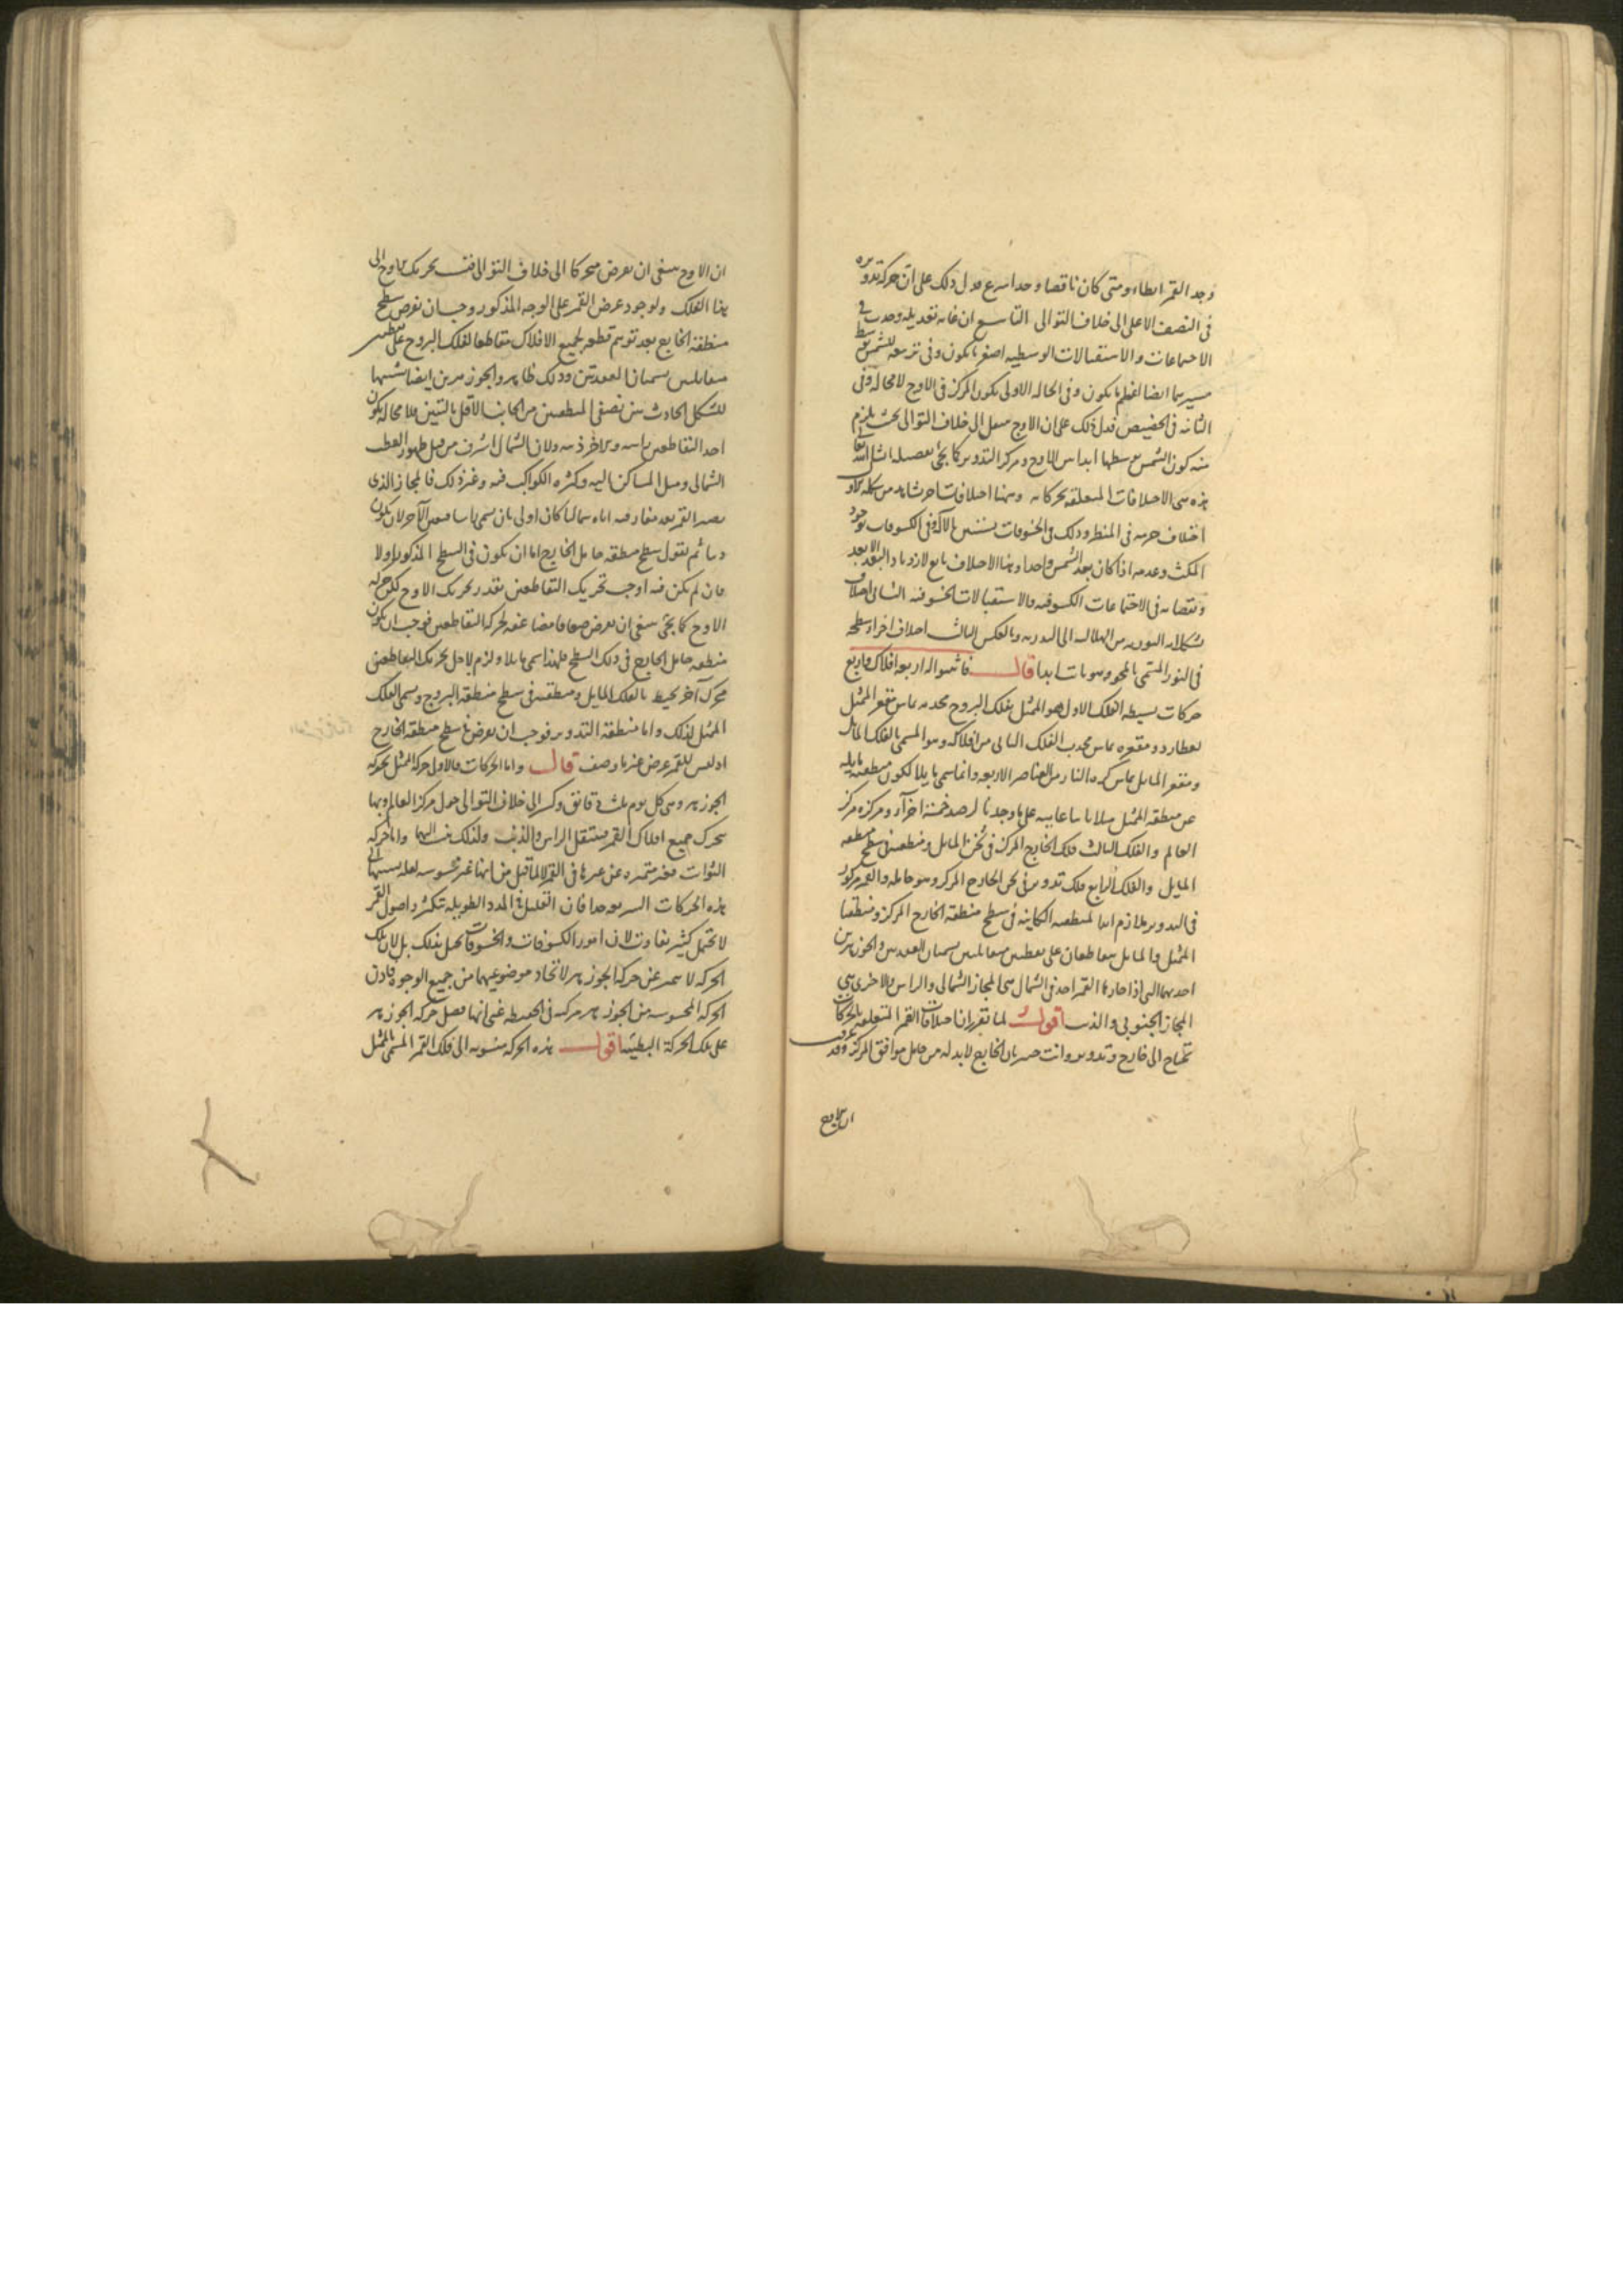 وجد القمر ابطاء ومتى كان ناقصا وجد اسرع فدل ذلك على ان حركة تدويره
فى النصف الاعلى الى خلاف التوالى التاسع ان غاية تعديله وجدت فى
الاجتماعات والاستقبالات الوسطية اصغر ما يكون وفى تربيعه للشمس بوسط
مسيرهما ايضا اعظم ما يكون وفى الحالة الاولى يكون المركز فى الاوج لا محالة وفى
الثانية فى الحضيض فدل ذلك على ان الاوج ينتقل الى خلاف التوالى بحيث يلزم
منه كون الشمس بوسطها ابدا بين الاوج ومركز التدوير كما يجئ تفصيله ان شاء الله تعالى
هذه هى الاختلافات المتعلقة بحركاته وههنا اختلافات اخر
اختلاف جرمه فى المنظر وذلك فى الخسوفات وفى الكسوفات بوجود
المكث وعدمه اذا كان بعد الشمس واحدا وهذا الاختلاف تابع لازدياد البعد الابعد
ونقصانه فى الاجتماعات الكسوفية والاستقبالات الخسوفية الثانى اختلاف
تشكلاته النورية من الهلالية الى البدرية وبالعكس الثالث اختلاف اجزاء سطحه
فى النور المسمى بالمحو وهو ثابت ابدا قال فاثبتوا له اربعة افلاك واربع
حركات بسيطة الفلك الاول هو الممثل بفلك البروج محدبه يماس مقعر الممثل
لعطارد ومقعره يماس محدب الفلك الثانى من افلاكه وهو المسمى بالفلك المائل
ومقعر المائل يماس كرة النار من العناصر الاربعة وانما سمى مايلا لكون منطقته مايلة
عن منطقة الممثل ميلا ثابتا غايته على ما وجدنا بالرصد خمسة اجزاء ومركزه مركز
العالم والفلك الثالث فلك الخارج المركز فى ثخن المايل ومنطقته فى سطح منطقة
المايل والفلك الرابع فلك تدوير فى ثخن الخارج المركز وهو حامله والقمر مركوز
فى التدوير ملازم ابدا لمنطقته الكاينة فى سطح منطقة الخارج المركز ومنطقتا
الممثل والمايل يتقاطعان على نقطتين متقابلتين يسميان العقدتين والجوزهرين
احديهما التى اذا جازها القمر اخذ فى الشمال هى المجاز الشمالى والراس والاخرى هى
المجاز الجنوبى والذنب اقول لما تقرر ان اختلافات القمر المتعلقة بالحركات
تحتاج الى خارج وتدوير وانت خبير بان الخارج لا بد له من حامل موافق المركز وقد عرف
ان الاوج
ان الاوج ينبغى ان يعرض متحركا الى خلاف التوالى فنسب تحريك الاوج الى
هذا الفلك ولوجود عرض القمر على الوجه المذكور وجب ان نفرض سطح
منطقة الخارج بعد توهم قطعه لجميع الافلاك متقاطعا لفلك البروج على نقطتين
متقابلتين يسميان العقدتين وذلك ظاهر والجوزهرين ايضا تشبيها
للشكل الحادث بين نصفى المنطقتين من الجانب الاقل بالتنين فلا محالة يكون
احد التقاطعين راسه والاخر ذنبه ولان الشمال اشرف من قبل ظهور القطب
الشمالى وميل المساكن اليه وكثرة الكواكب فيه وغير ذلك فالمجاز الذى
يصير القمر بعد مفارقته اياه شماليا كان اولى بان يسمى راسا فتعين الاخر لان يكون
ذنبا ثم نقول سطح منطقة حامل الخارج اما ان يكون فى السطح المذكور او لا
فان لم يكن فيه اوجب تحريك التقاطعين بقدر تحريك الاوج لكن حركة
الاوج كما يجئ ينبغى ان تعرض ضعافا مضاعفة لحركة التقاطعين فوجب ان يكون
منطقة حامل الخارج فى ذلك السطح فلهذا سمى مايلا ولزم لاجل تحريك التقاطعين
محرك آخر يحيط بالفلك المايل ومنطقته فى سطح منطقة البروج ويسمى الفلك
الممثل لذلك واما منطقة التدوير فوجب ان تعرض فى سطح منطقة الخارج
اذ ليس للقمر عرض غير ما وصف قال واما الحركات فالاولى حركة الممثل كحركة
الجوزهر وهى كل يوم ثلث دقائق وكسر الى خلاف التوالى حول مركز العالم وبها
يتحرك جميع افلاك القمر فينتقل الراس والذنب ولذلك نسب اليهما واما حركة
الثوابت فغير متميزة عن غيرها فى القمر لا لما قيل من انها غير محسوسة لقلة نسبتها الى
هذه الحركات السريعة جدا فان القليل فى المدد الطويلة تتكثر واصول القمر
لا تحتمل كثير تفاوت لان امور الكسوفات والخسوفات تختل بذلك بل لان تلك
الحركة لا تتميز عن حركة الجوزهر لاتحاد موضوعيهما من جميع الوجوه فاذن
الحركة المحسوسة من الجوزهر مركبة فى الحقيقة غير انها فضل حركة الجوزهر
على تلك الحركة البطيئة اقول هذه الحركة منسوبة الى فلك القمر المسمى بالممثل